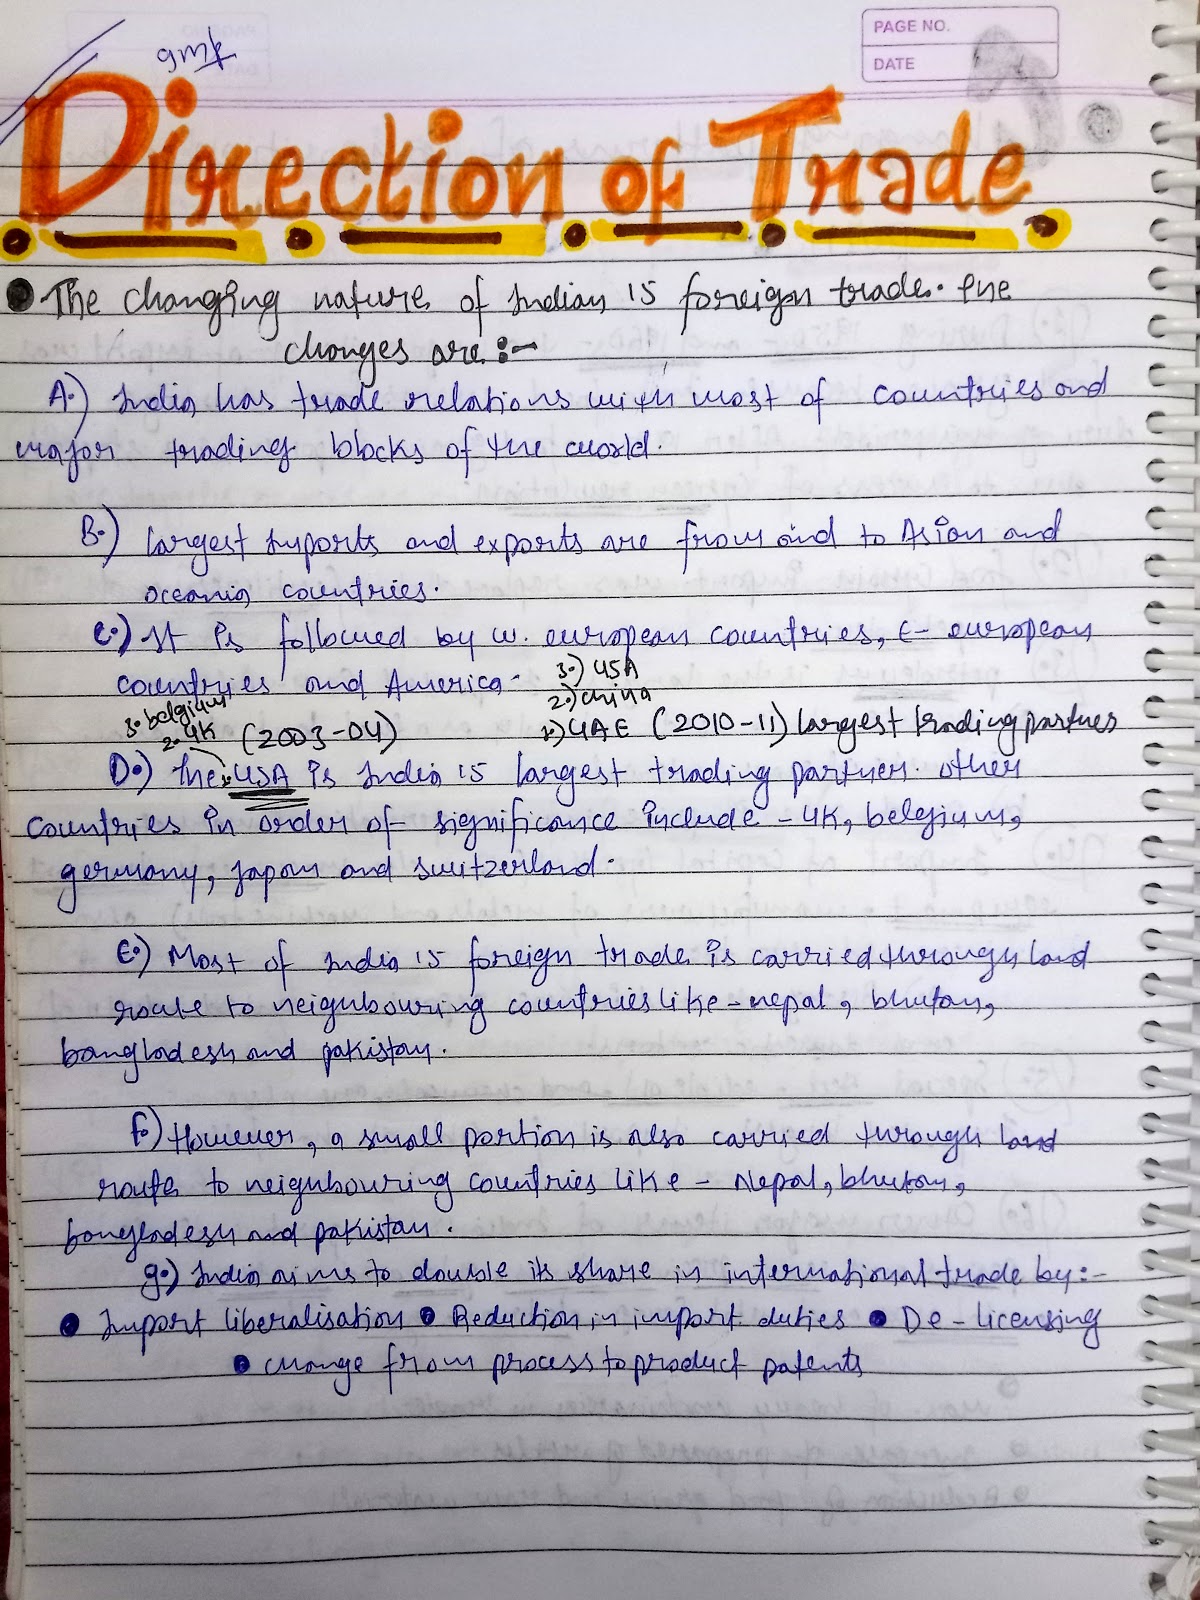 gmk
PAGE NO.
DATE
Direction of Trade
The changing nature of Indian is foreign trade. The
changes are :-
A.) India has trade relations with most of countries and
major trading blocks of the world.
B.) Largest imports and exports are from and to Asian and
oceania countries.
C.) It is followed by w. european countries, E- european
countries and America.
3.) USA
3. belgium
2.) china
2. UK (2003-04)
1.) UAE (2010-11) largest trading partner
D.) The 1. USA is India is largest trading partner. other
countries in order of significance include - UK, belgium,
germany, japan and switzerland.
E.) Most of India is foreign trade is carried through land
route to neighbouring countries like - nepal, bhutan,
bangladesh and pakistan.
f.) However, a small portion is also carried through land
route to neighbouring countries like - Nepal, bhutan,
bangladesh and pakistan.
g.) India aims to double its share in international trade by:-
• Import liberalisation • Reduction in import duties • De-licensing
• change from process to product patents